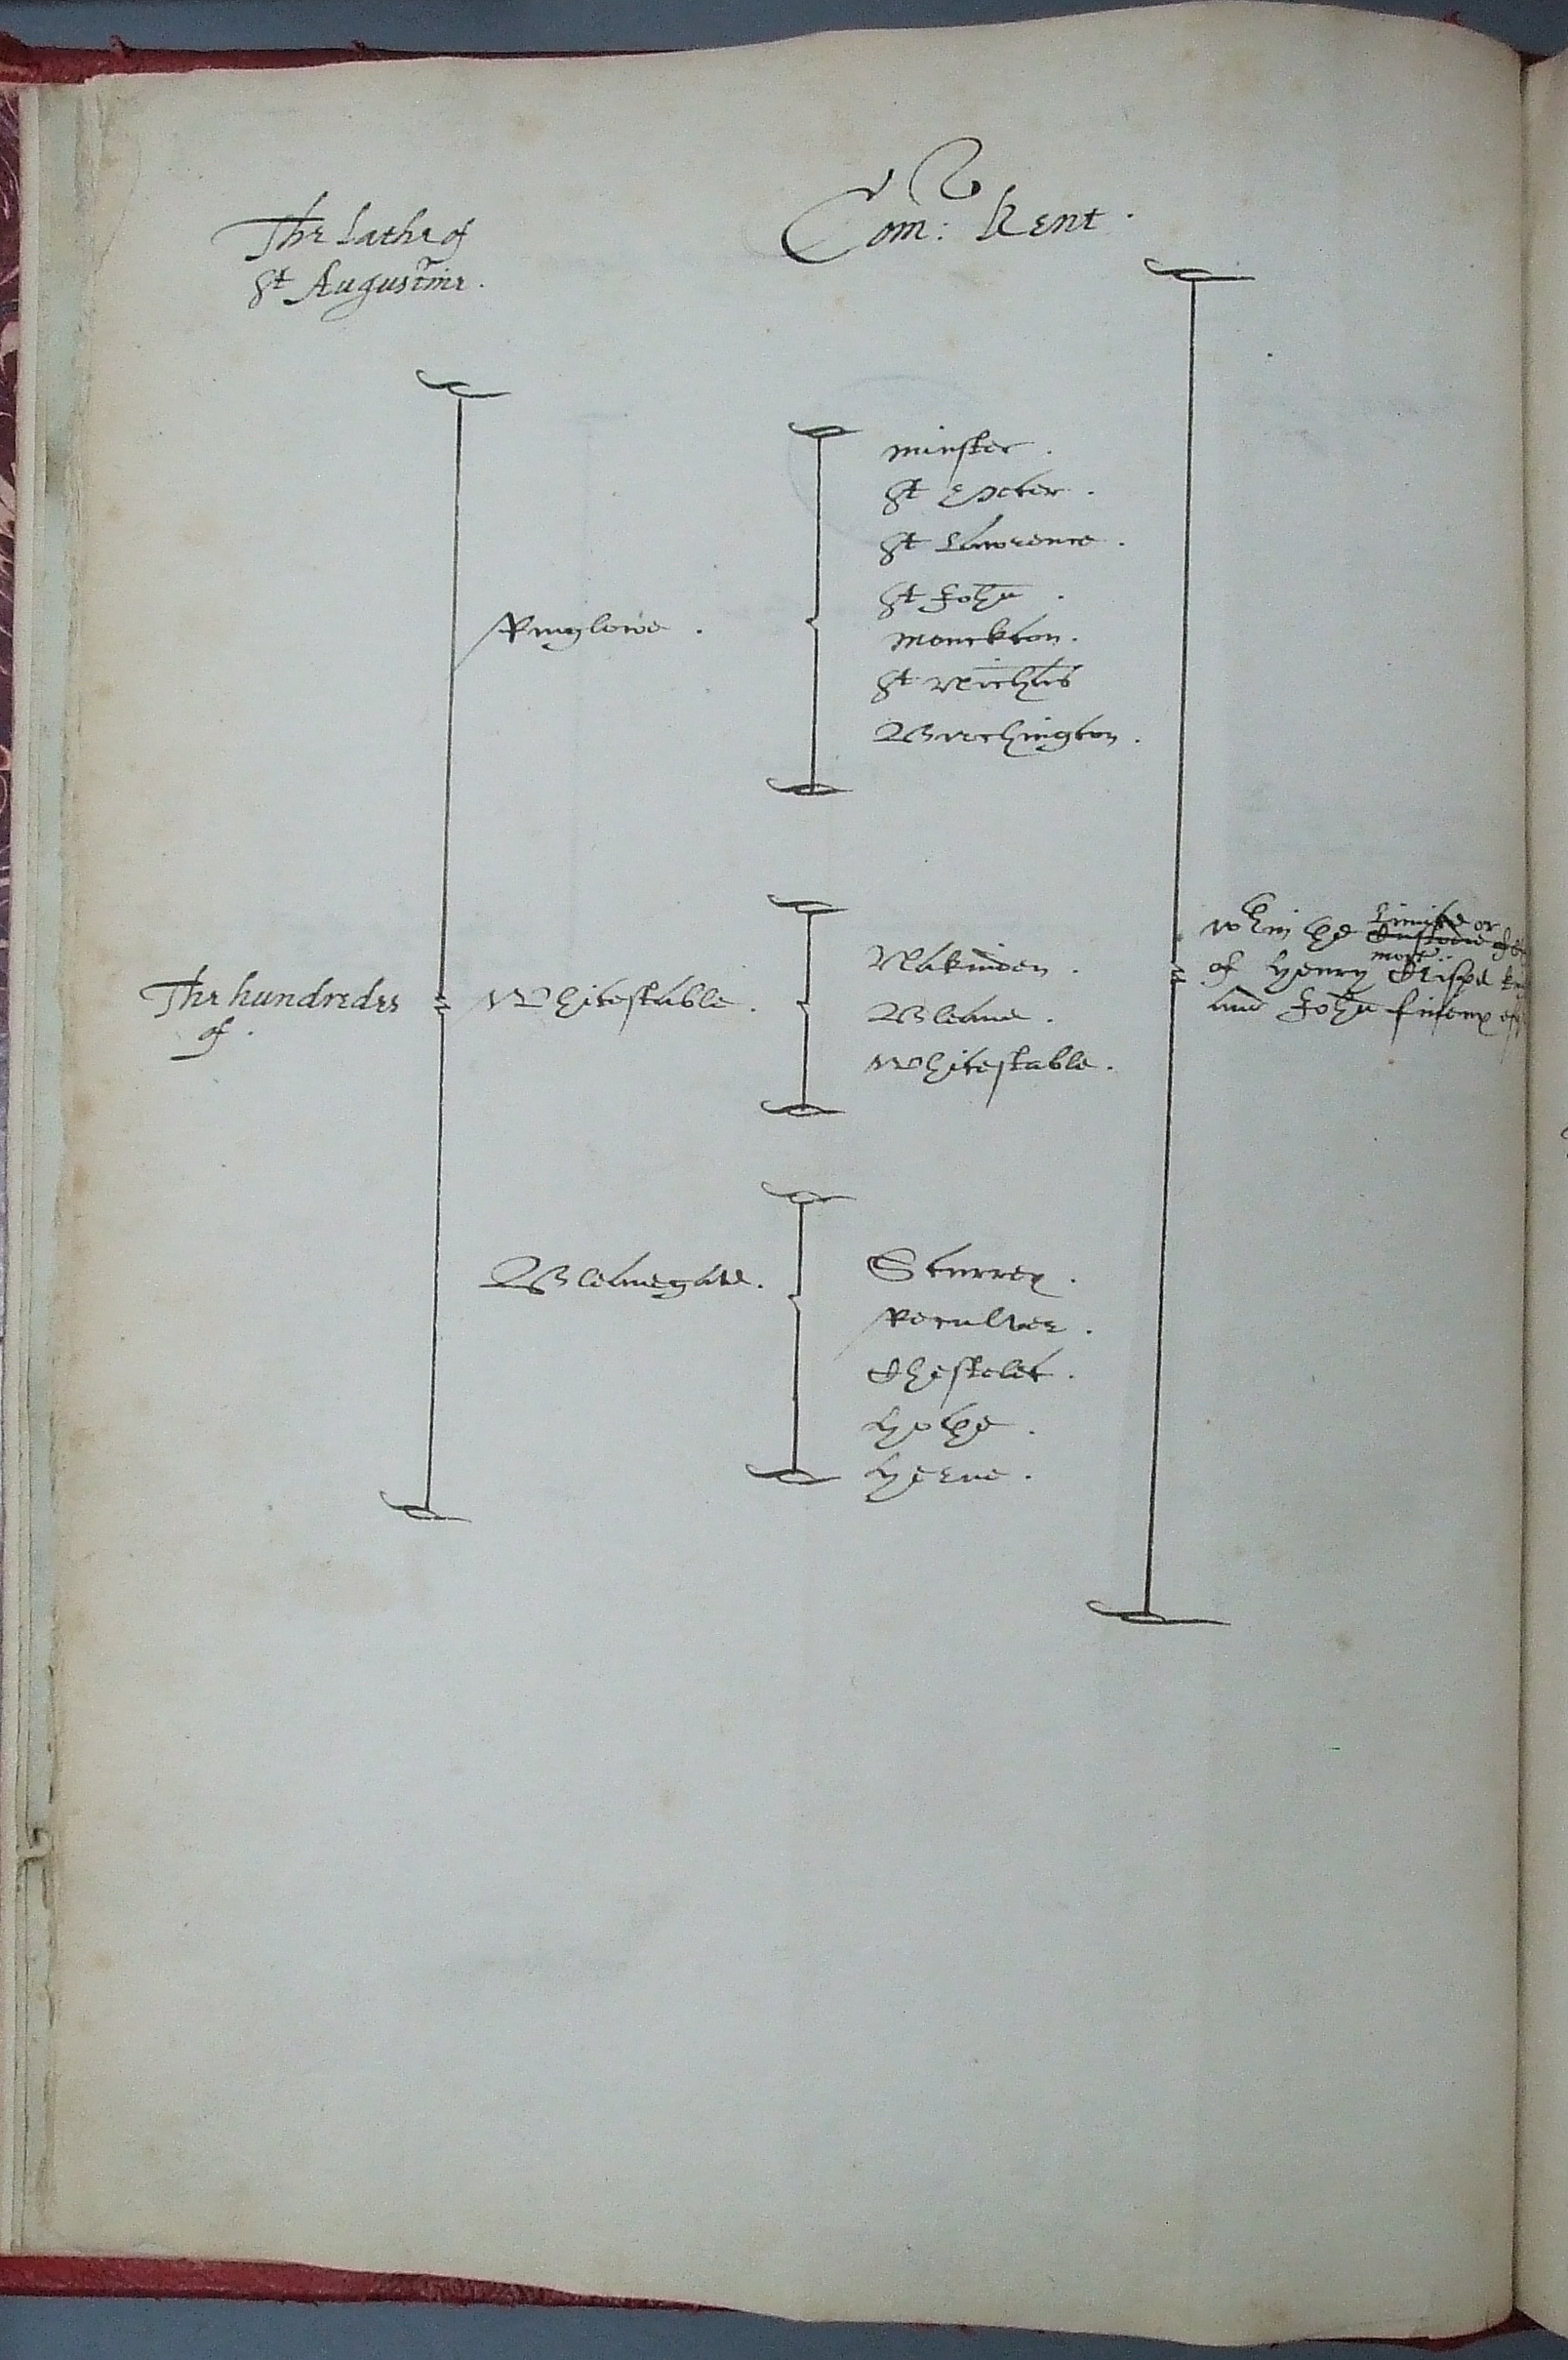 The Lathe of
St Augustine.
Com: Kent.
The hundredes
of.
Ringlowe.
minster.
St Peter.
St Lawrence.
St John.
Monckton.
St Nichas
Birchington.
Whitestable.
Natinden.
Bleane.
Whitestable.
Bleanegate.
Sturrey.
Reculver.
Chestelet.
Hothe.
Herne.
wthin the Limite or
Custodie of
more
of Henry Crispe
and John fineux